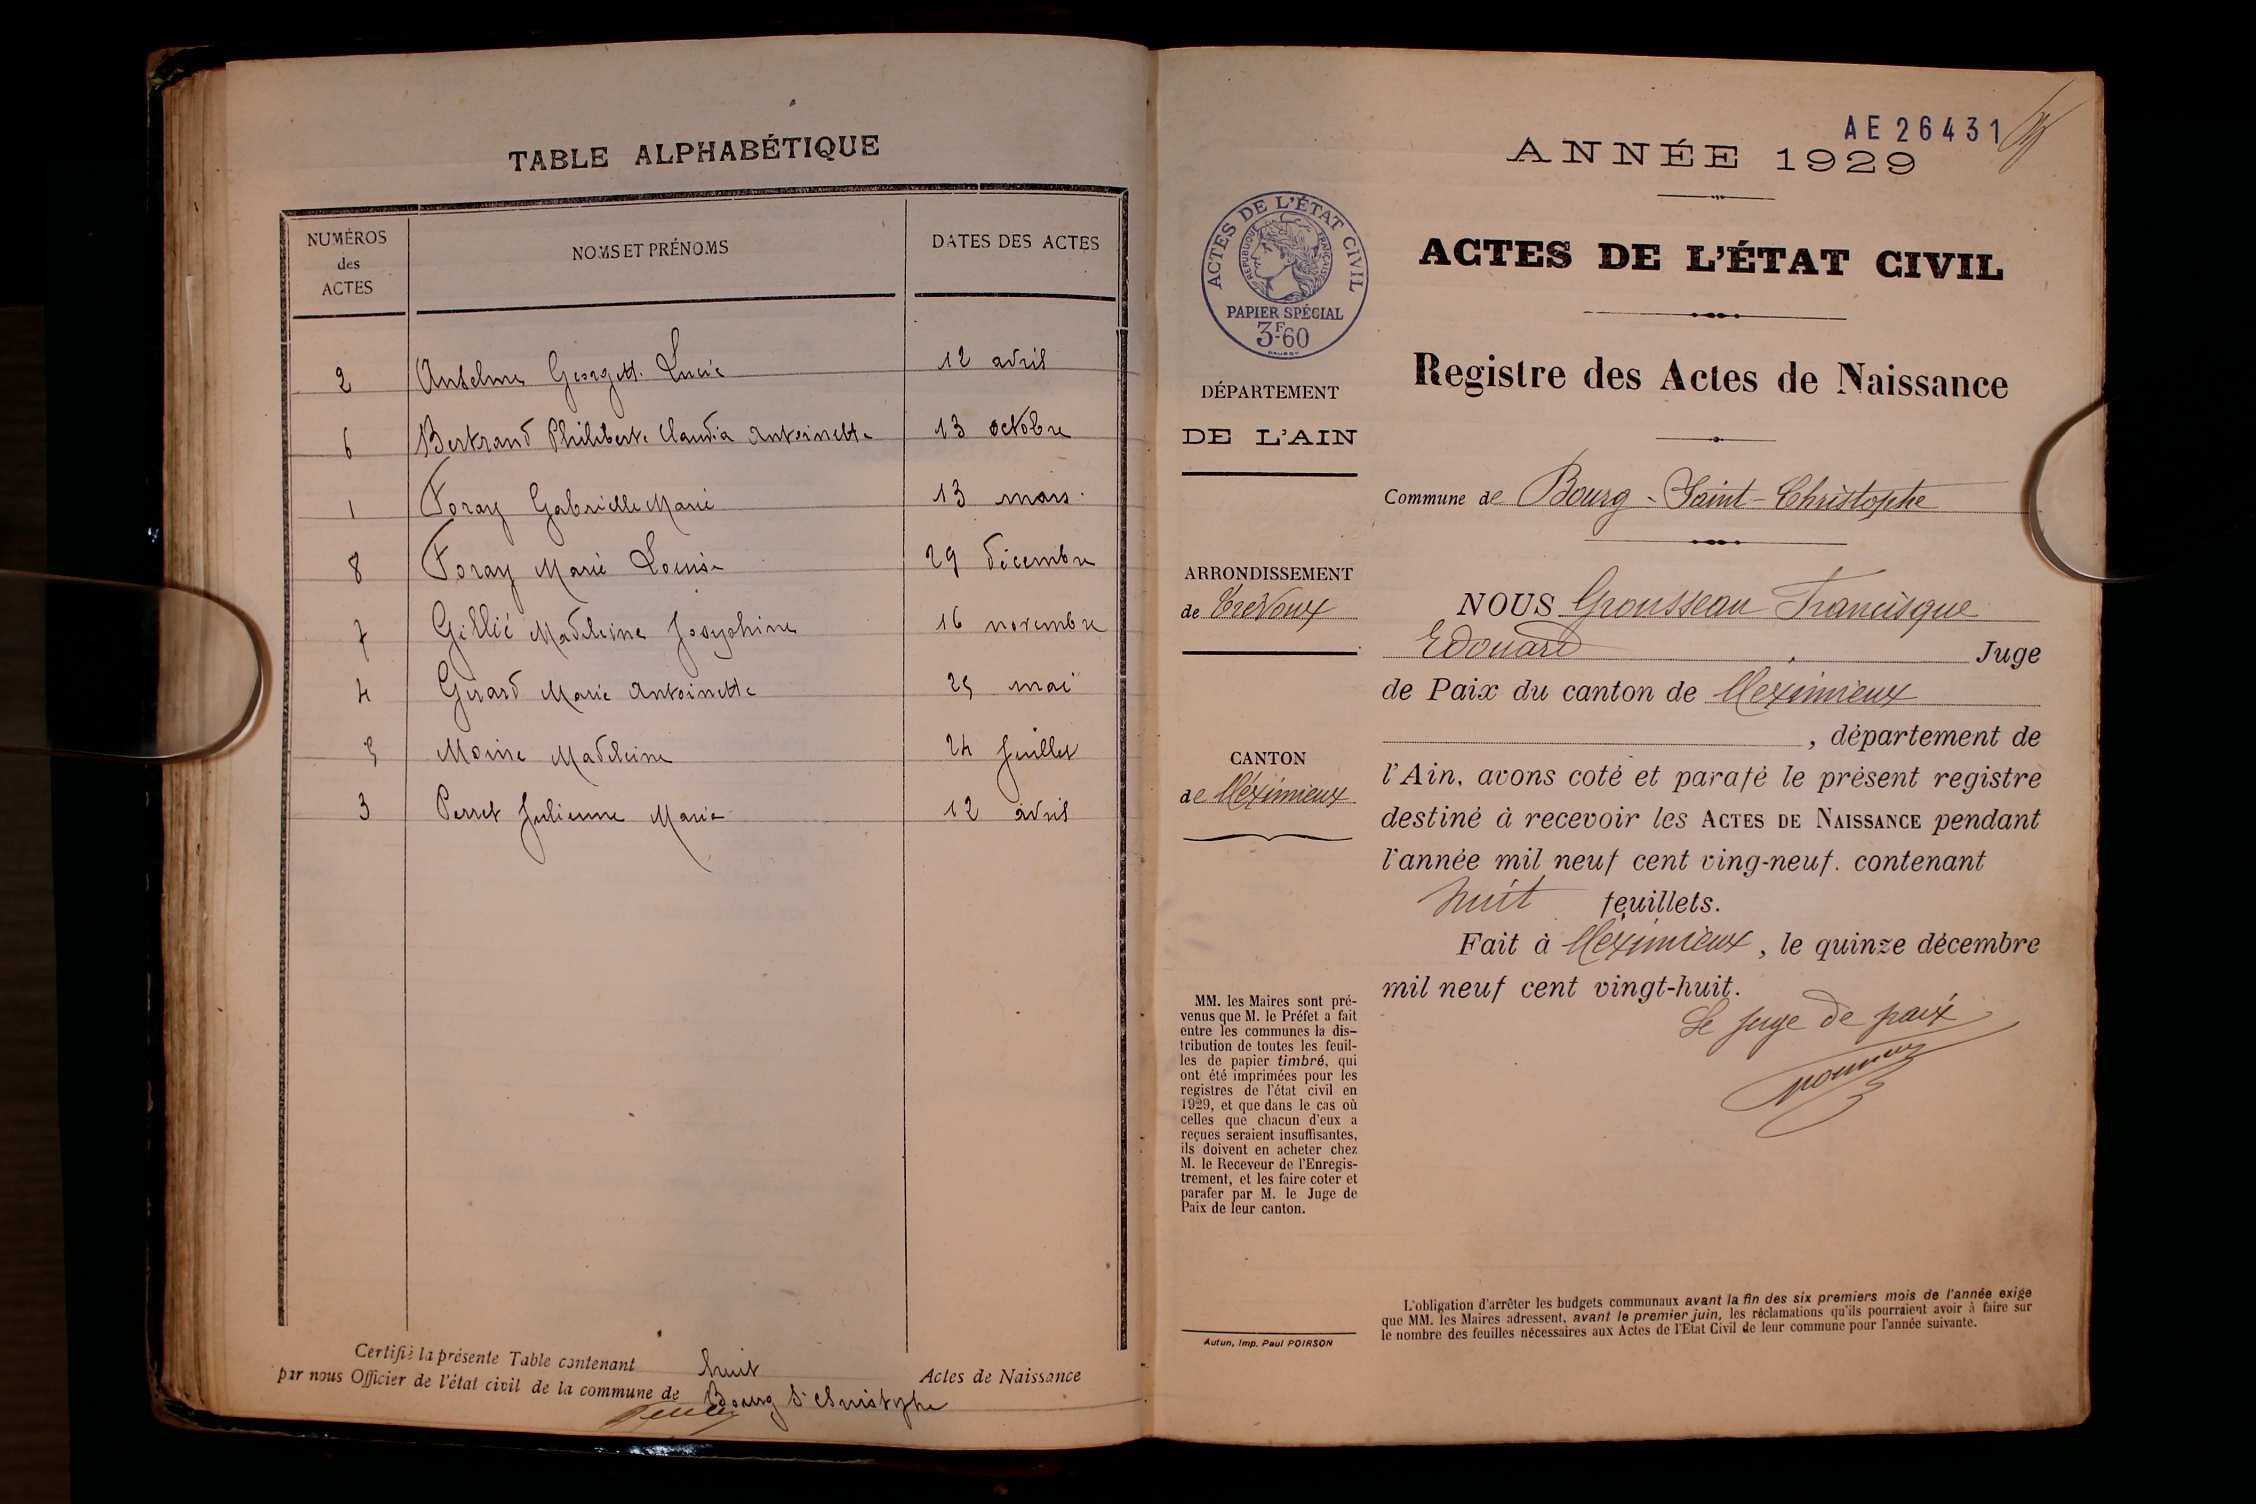 TABLE ALPHABÉTIQUE
NUMÉROS des ACTES NOMS ET PRÉNOMS DATES DES ACTES
2 Anselme Georgette Lucie 12 avril
6 Bertrand Philiberte Claudia Antoinette 13 octobre
1 Foray Gabrielle Marie 13 mars
8 Foray Marie Louise 29 décembre
7 Gillié Madeleine Josephine 16 novembre
4 Girard Marie Antoinette 25 mai
5 Moine Madeleine 24 Juillet
3 Perret Julienne Marie 12 avril
Certifié la présente Table contenant huit Actes de Naissance
par nous Officier de l'état civil de la commune de Bourg St Christophe
AE 26431
ANNÉE 1929
ACTES DE L'ÉTAT CIVIL
RÉPUBLIQUE FRANÇAISE
PAPIER SPÉCIAL
3F.60
DÉPARTEMENT
DE L'AIN
ARRONDISSEMENT
de Trevoux
CANTON
de Méximieux
MM. les Maires sont pré-
venus que M. le Préfet a fait
entre les communes la dis-
tribution de toutes les feuil-
les de papier timbré, qui
ont été imprimées pour les
registres de l'état civil en
1929, et que dans le cas où
celles que chacun d'eux a
reçues seraient insuffisantes,
ils doivent en acheter chez
M. le Receveur de l'Enregis-
trement, et les faire coter et
parafer par M. le Juge de
Paix de leur canton.
Autun, Imp. Paul POIRSON
ACTES DE L'ÉTAT CIVIL
Registre des Actes de Naissance
Commune de Bourg-Saint-Christophe
NOUS Grousseau Francisque
Edouard Juge
de Paix du canton de Meximieux
, département de
l'Ain, avons coté et parafé le présent registre
destiné à recevoir les ACTES DE NAISSANCE pendant
l'année mil neuf cent ving-neuf. contenant
huit feuillets.
Fait à Meximieux, le quinze décembre
mil neuf cent vingt-huit.
Le juge de paix
L'obligation d'arrêter les budgets communaux avant la fin des six premiers mois de l'année exige
que MM. les Maires adressent, avant le premier juin, les réclamations qu'ils pourraient avoir à faire sur
le nombre des feuilles nécessaires aux Actes de l'Etat Civil de leur commune pour l'année suivante.